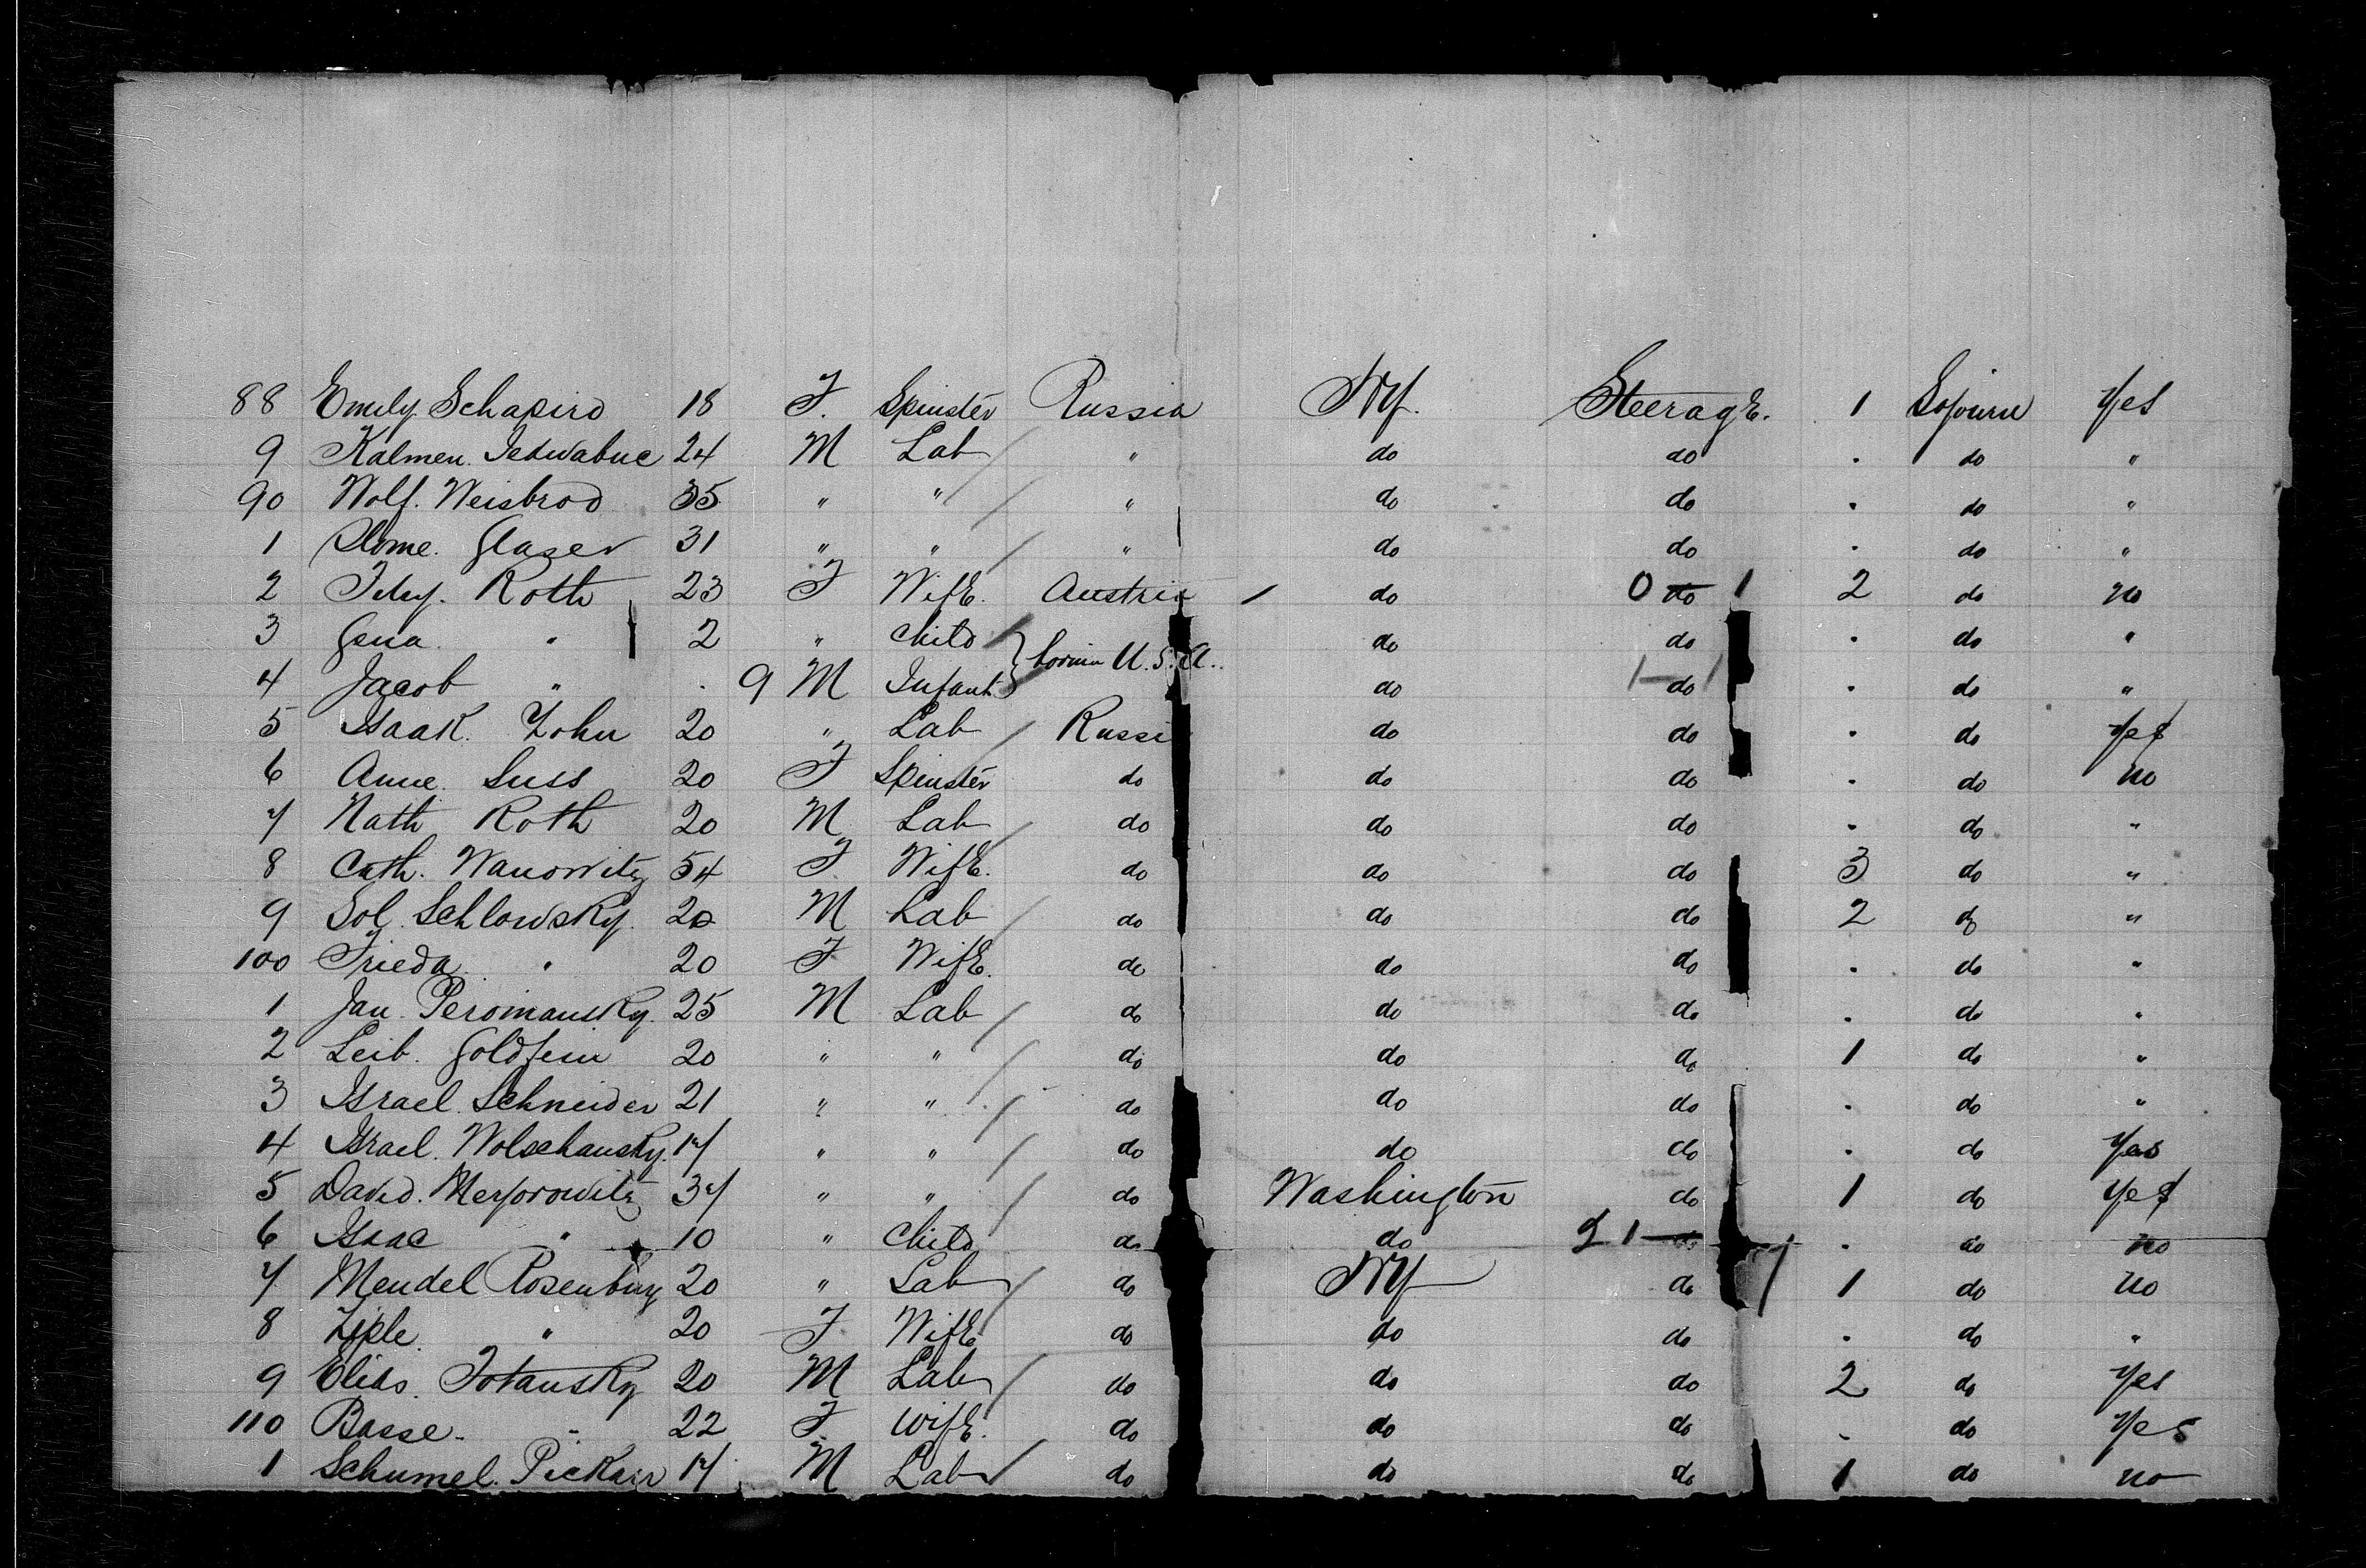 88 Emily Schapiro 18 F. Spinster Russia NY. Steerage. 1 Sojourn Yes
9 Kalmen. Jedwabuc 24 M Lab " do do . do "
90 Wolf. Weisbrod 35 " " " do do . do "
1 Slome. Glaser 31 " " " do do . do "
2 Roth 23 F Wife. Austria / do 0 do 1 2 do no
3 Gena. " 2 " Child do do . do "
born in U.S.A.
4 Jacob " . 9 M Infant do 1 do 1 . do "
5 Isaak. Zohn 20 " Lab Russi do do . do Yes
6 Anne. Suss 20 F Spinster do do do . do no
7 Nath Roth 20 M Lab do do do . do "
8 Cath. Wanowitz 54 F. Wife. do do do 3 do "
9 Sol. Schlowsky. 20 M Lab do do do 2 do "
100 Frieda " 20 F Wife. do do do . do "
1 Jan. Peromansky. 25 M Lab do do do . do "
2 Leib. Goldfein 20 " " do do do 1 do "
3 Israel. Schneider 21 " " do do do . do "
4 Israel. Wolschansky. 17 " " do do do . do Yes
5 David. Meyorowitz 37 " " do Washington do 1 do Yes
6 Isaac " 10 " Child do do 2 1 do . do no
7 Mendel Rosenburg 20 " Lab do NY do 1 do no
8 Ziple. " 20 F. Wife do do do . do "
9 Elias. Totansky 20 M Lab do do do 2 do Yes
110 Basse. " 22 F. Wife. do do do . do Yes
1 Schumel. Pickair 17 M Lab do do do 1 do no